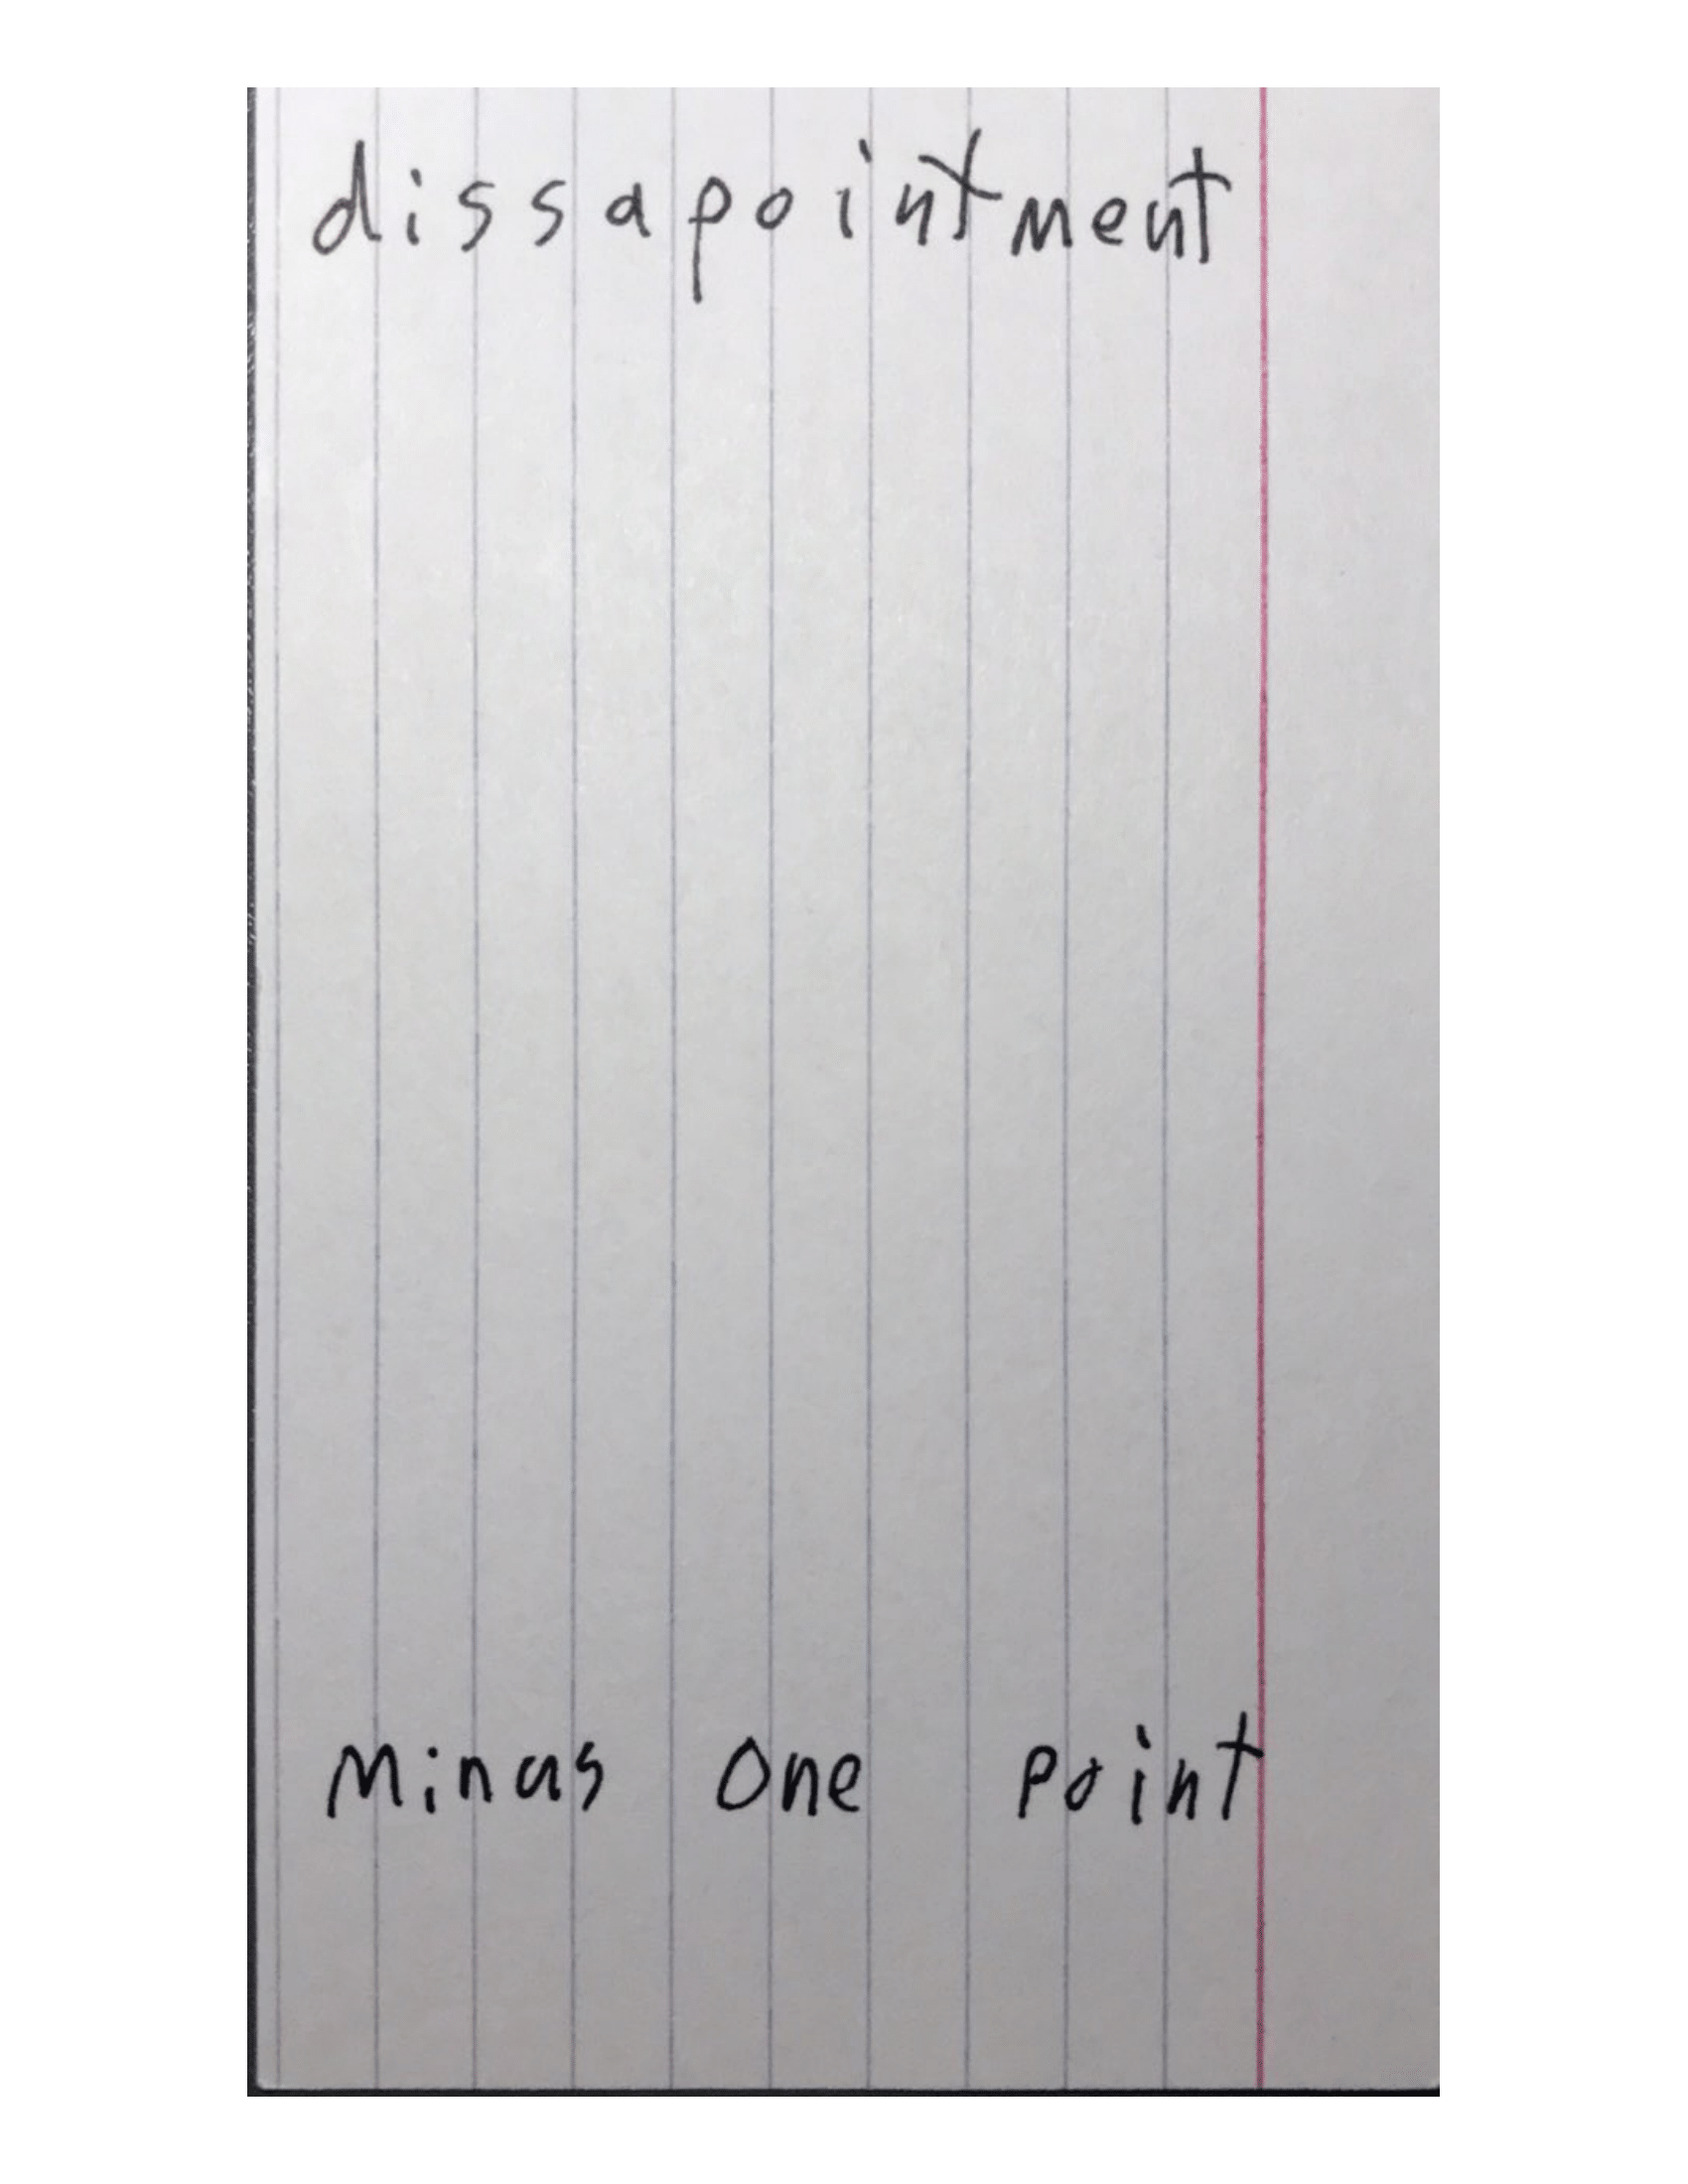 dissapointment
Minus One Point